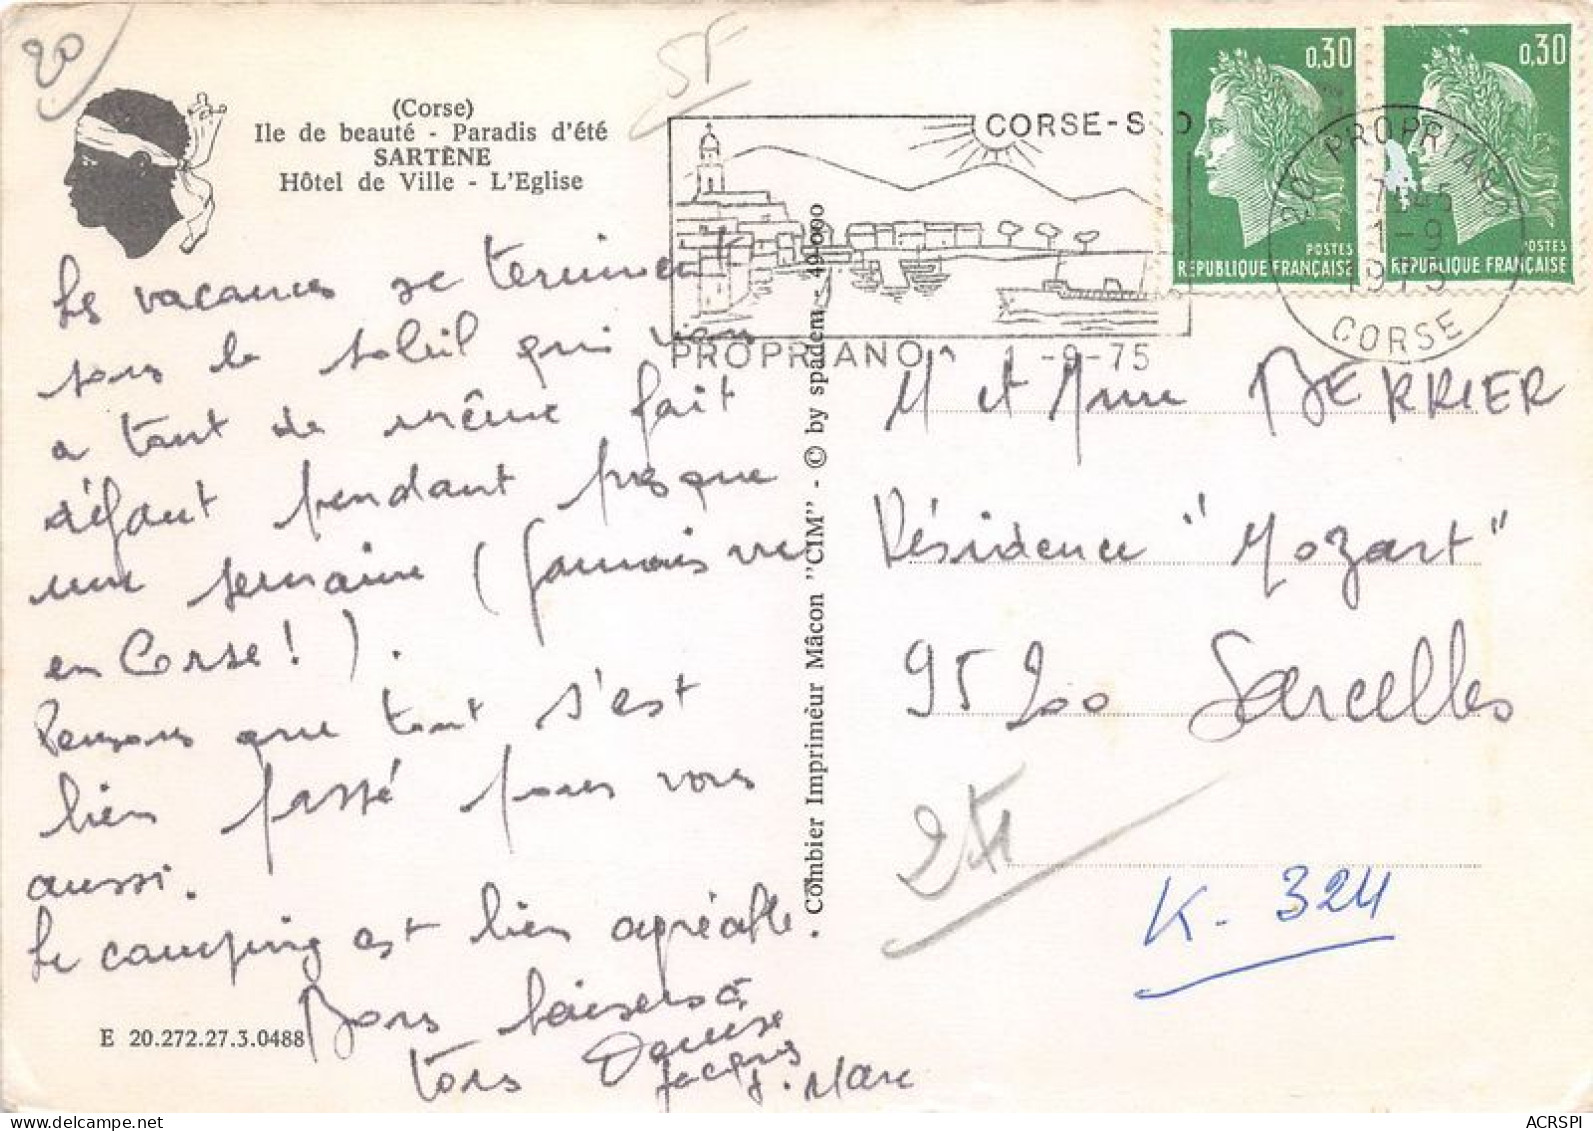 20
5F
(Corse)
Ile de beauté - Paradis d'été
SARTÈNE
Hôtel de Ville - L'Eglise
CORSE-S
PROPRIANO 1-9-75
0,30
POSTES
REPUBLIQUE FRANÇAISE
0,30
POSTES
REPUBLIQUE FRANÇAISE
20 PROPRIANO
1-9
1975
CORSE
Les vacances se terminent
sous le soleil qui vient
a tant de même fait
défaut pendant presque
une semaine (jamais vu
en Corse!).
Pensons que tout s'est
bien passé pour vous
aussi.
Le camping est bien agréable.
Bons baisers à
tous Denise
Jacques
J. Marc
E 20.272.27.3.0488
Combier Imprimeur Mâcon "CIM" - © by spadem - 49.000
M et Mme BERRIER
Résidence "Mozart"
95200 Sarcelles
2F
K. 324
ACRSPI